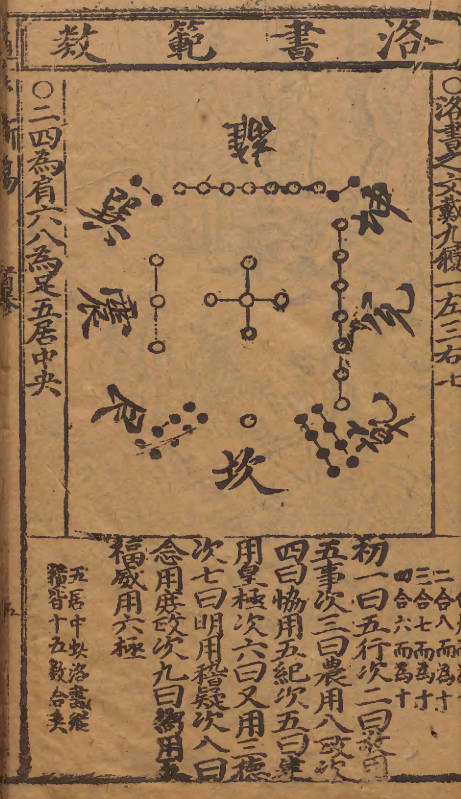 洛書範数
○洛書之文戴九履一左三右七
離
巽
坤
震
兌
艮
乾
坎
○二四為肩六八為足五居中央
二合八而為十
三合七而為十
四合六而為十
初一曰五行次二曰敬用
五事次三曰農用八政次
四曰恊用五紀次五曰建
用皇極次六曰又用三德
次七曰明用稽疑次八曰
念用庶政次九曰嚮用五
福威用六極
五居中央洛書縱
橫皆十五数合矣